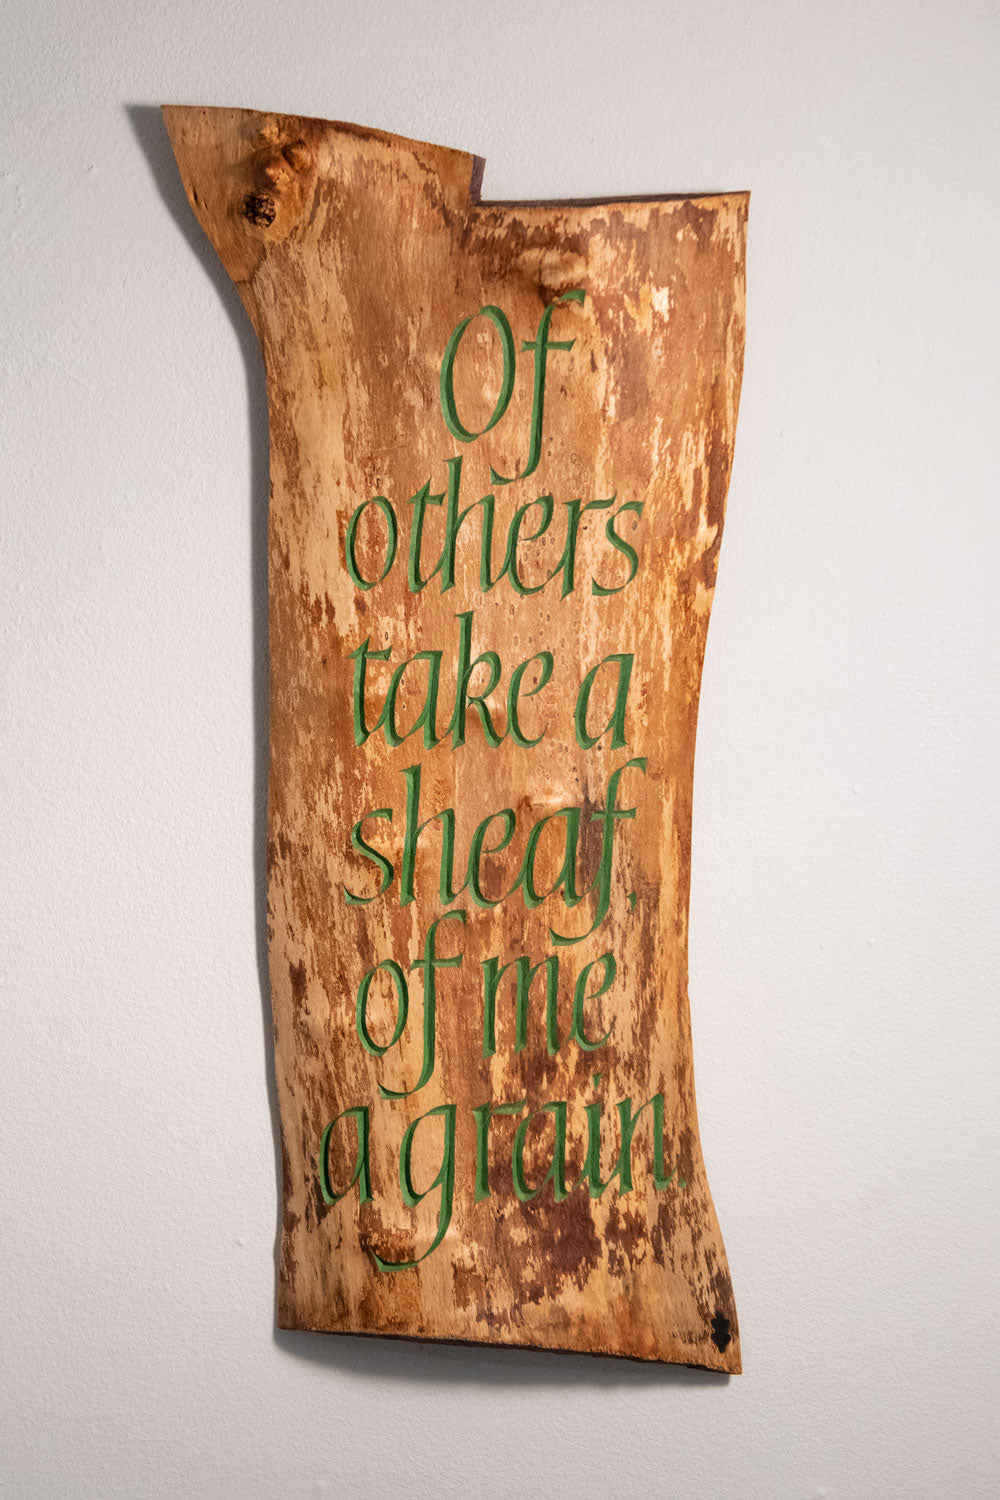 Of
others
take a
sheaf,
of me
a grain.